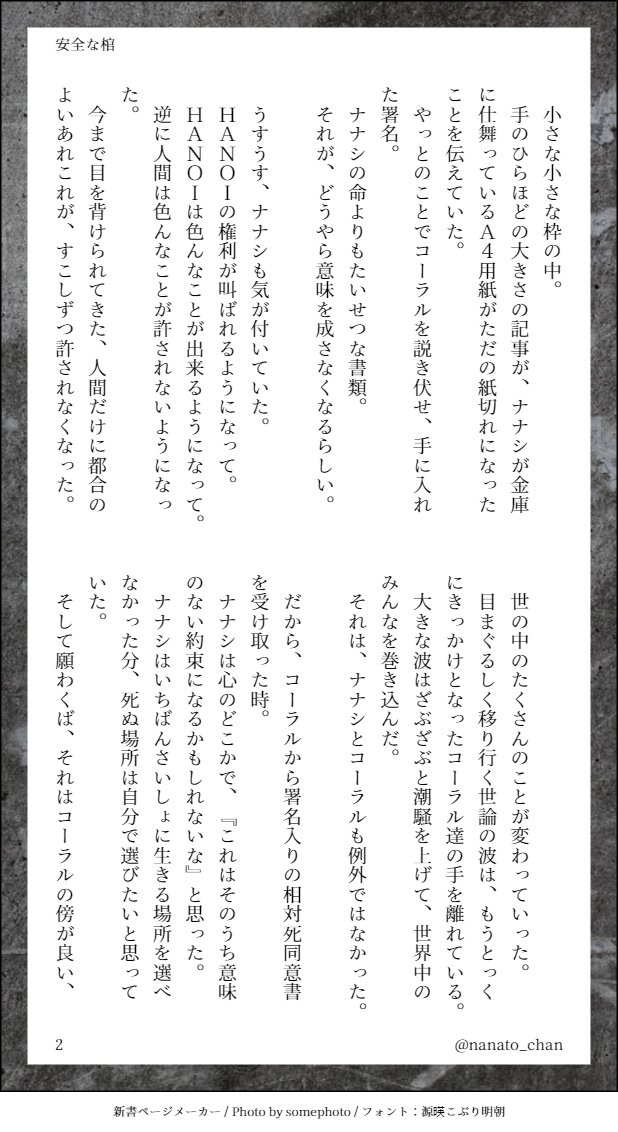 安全な棺
小さな小さな枠の中。
手のひらほどの大きさの記事が、ナナシが金庫
に仕舞っているA4用紙がただの紙切れになった
ことを伝えていた。
やっとのことでコーラルを説き伏せ、手に入れ
た署名。
ナナシの命よりもたいせつな書類。
それが、どうやら意味を成さなくなるらしい。
うすうす、ナナシも気が付いていた。
HANOIの権利が叫ばれるようになって。
HANOIは色んなことが出来るようになって。
逆に人間は色んなことが許されないようになっ
た。
今まで目を背けられてきた、人間だけに都合の
よいあれこれが、すこしずつ許されなくなった。
世の中のたくさんのことが変わっていった。
目まぐるしく移り行く世論の波は、もうとっく
にきっかけとなったコーラル達の手を離れている。
大きな波はざぶざぶと潮騒を上げて、世界中の
みんなを巻き込んだ。
それは、ナナシとコーラルも例外ではなかった。
だから、コーラルから署名入りの相対死同意書
を受け取った時。
ナナシは心のどこかで、『これはそのうち意味
のない約束になるかもしれないな』と思った。
ナナシはいちばんさいしょに生きる場所を選べ
なかった分、死ぬ場所は自分で選びたいと思って
いた。
そして願わくば、それはコーラルの傍が良い、
2
@nanato_chan
新書ページメーカー / Photo by somephoto / フォント：源暎こぶり明朝